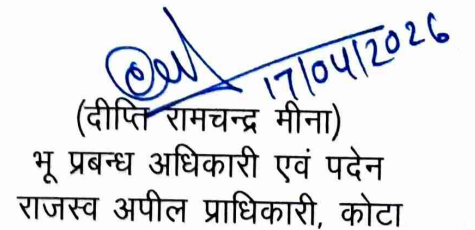 17/04/2026
(दीप्ति रामचन्द्र मीना)
भू प्रबन्ध अधिकारी एवं पदेन
राजस्व अपील प्राधिकारी, कोटा